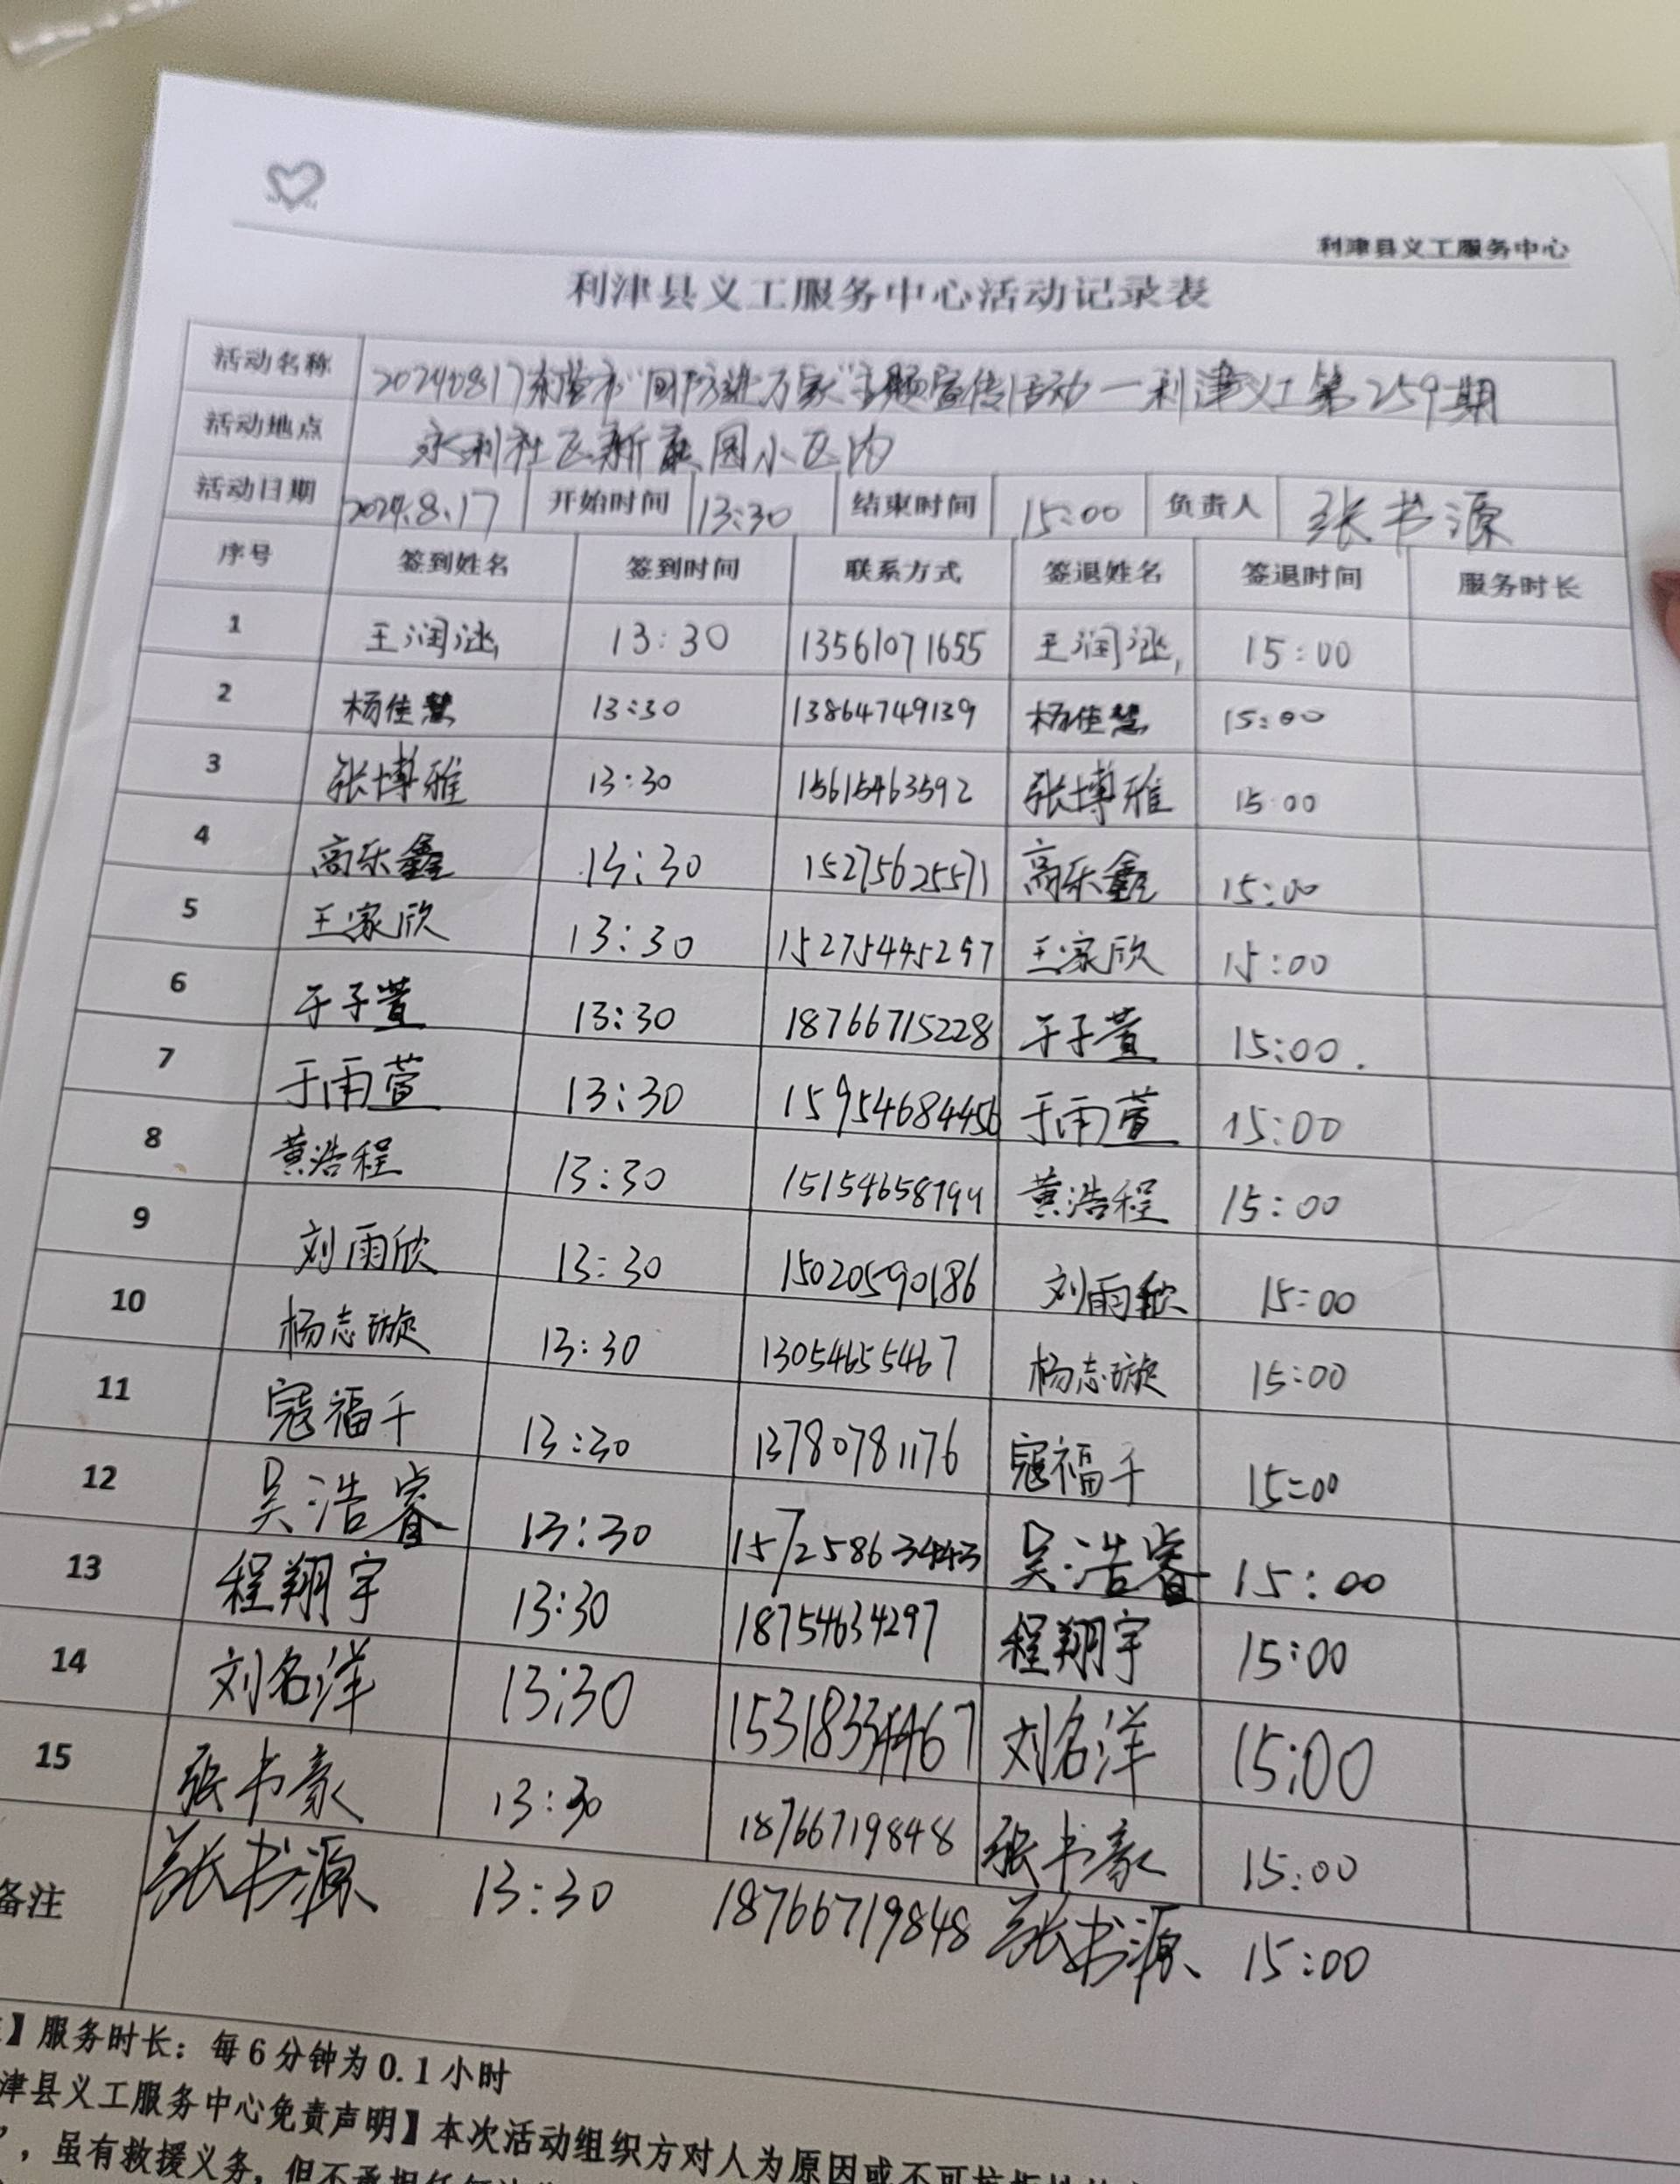 利津县义工服务中心
利津县义工服务中心活动记录表
活动名称 20240817东营市“国防进万家”主题宣传活动—利津义工第259期
活动地点 永利社区新庄园小区内
活动日期 2024.8.17 开始时间 13:30 结束时间 15:00 负责人 张书源
序号 签到姓名 签到时间 联系方式 签退姓名 签退时间 服务时长
1 王润涵 13:30 13561071655 王润涵 15:00
2 杨佳慧 13:30 13864749139 杨佳慧 15:00
3 张博雅 13:30 15615463592 张博雅 15:00
4 高乐鑫 13:30 15275625571 高乐鑫 15:00
5 王家欣 13:30 15275445297 王家欣 15:00
6 于子萱 13:30 18766715228 于子萱 15:00.
7 于雨萱 13:30 15954684456 于雨萱 15:00
8 黄浩程 13:30 15154658794 黄浩程 15:00
9 刘雨欣 13:30 15020590186 刘雨欣 15:00
10 杨志璇 13:30 13054655467 杨志璇 15:00
11 寇福千 13:30 13780781176 寇福千 15:00
12 吴浩睿 13:30 15725863443 吴浩睿 15:00
13 程翔宇 13:30 18754634297 程翔宇 15:00
14 刘名洋 13:30 15318334467 刘名洋 15:00
15 张书豪 13:30 18766719848 张书豪 15:00
备注 张书源 13:30 18766719848 张书源 15:00
】服务时长：每6分钟为0.1小时
津县义工服务中心免责声明】本次活动组织方对人为原因或不可抗
，虽有救援义务，但不承担任何